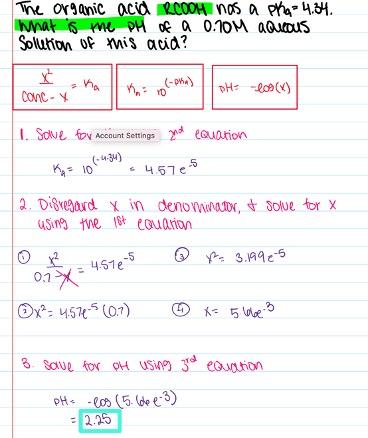 The organic acid RCOOH has a pKa = 4.34.
What is the pH of a 0.70M aqueous
solution of this acid?
x² / conc - x = Ka
Ka = 10^(-pKa)
pH = -log(x)
1. Solve for Account Settings 2nd equation
Ka = 10^(-4.34) = 4.57 e^-5
2. Disregard x in denominator, & solve for x
using the 1st equation
① x² / 0.7 - x = 4.57e^-5
③ x² = 3.199e^-5
② x² = 4.57e^-5 (0.7)
④ x = 5.66e^-3
3. Solve for pH using 3rd equation
pH = -log (5.66e^-3)
= 2.25